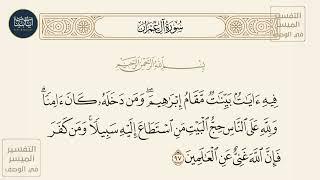 سُورَةُ آلِ عِمْرَان
بِسْمِ اللَّهِ الرَّحْمَٰنِ الرَّحِيمِ
فِيهِ ءَايَٰتُۢ بَيِّنَٰتٞ مَّقَامُ إِبۡرَٰهِيمَۖ وَمَن دَخَلَهُۥ كَانَ ءَامِنٗاۗ
وَلِلَّهِ عَلَى ٱلنَّاسِ حِجُّ ٱلۡبَيۡتِ مَنِ ٱسۡتَطَاعَ إِلَيۡهِ سَبِيلٗاۚ وَمَن كَفَرَ
فَإِنَّ ٱللَّهَ غَنِيٌّ عَنِ ٱلۡعَٰلَمِينَ ٩٧
التفسير
الميسر
في الوصف
التفسير
الميسر
في الوصف